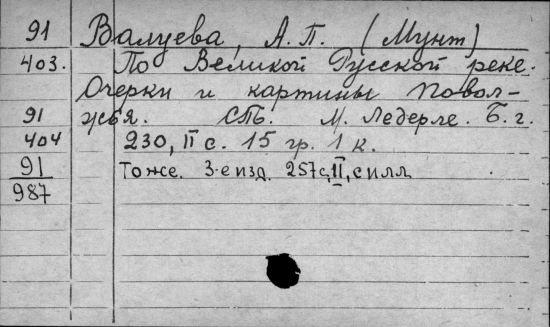 91 Валуева, А. П. (Мунт)
403. По Великой Русской реке.
Очерки и картины Повол-
91 жья. СПб. М. Ледерле. Б. г.
404 230, II с. 15 гр. 1 к.
91 То же. 3-е изд. 257с, II, с илл.
987